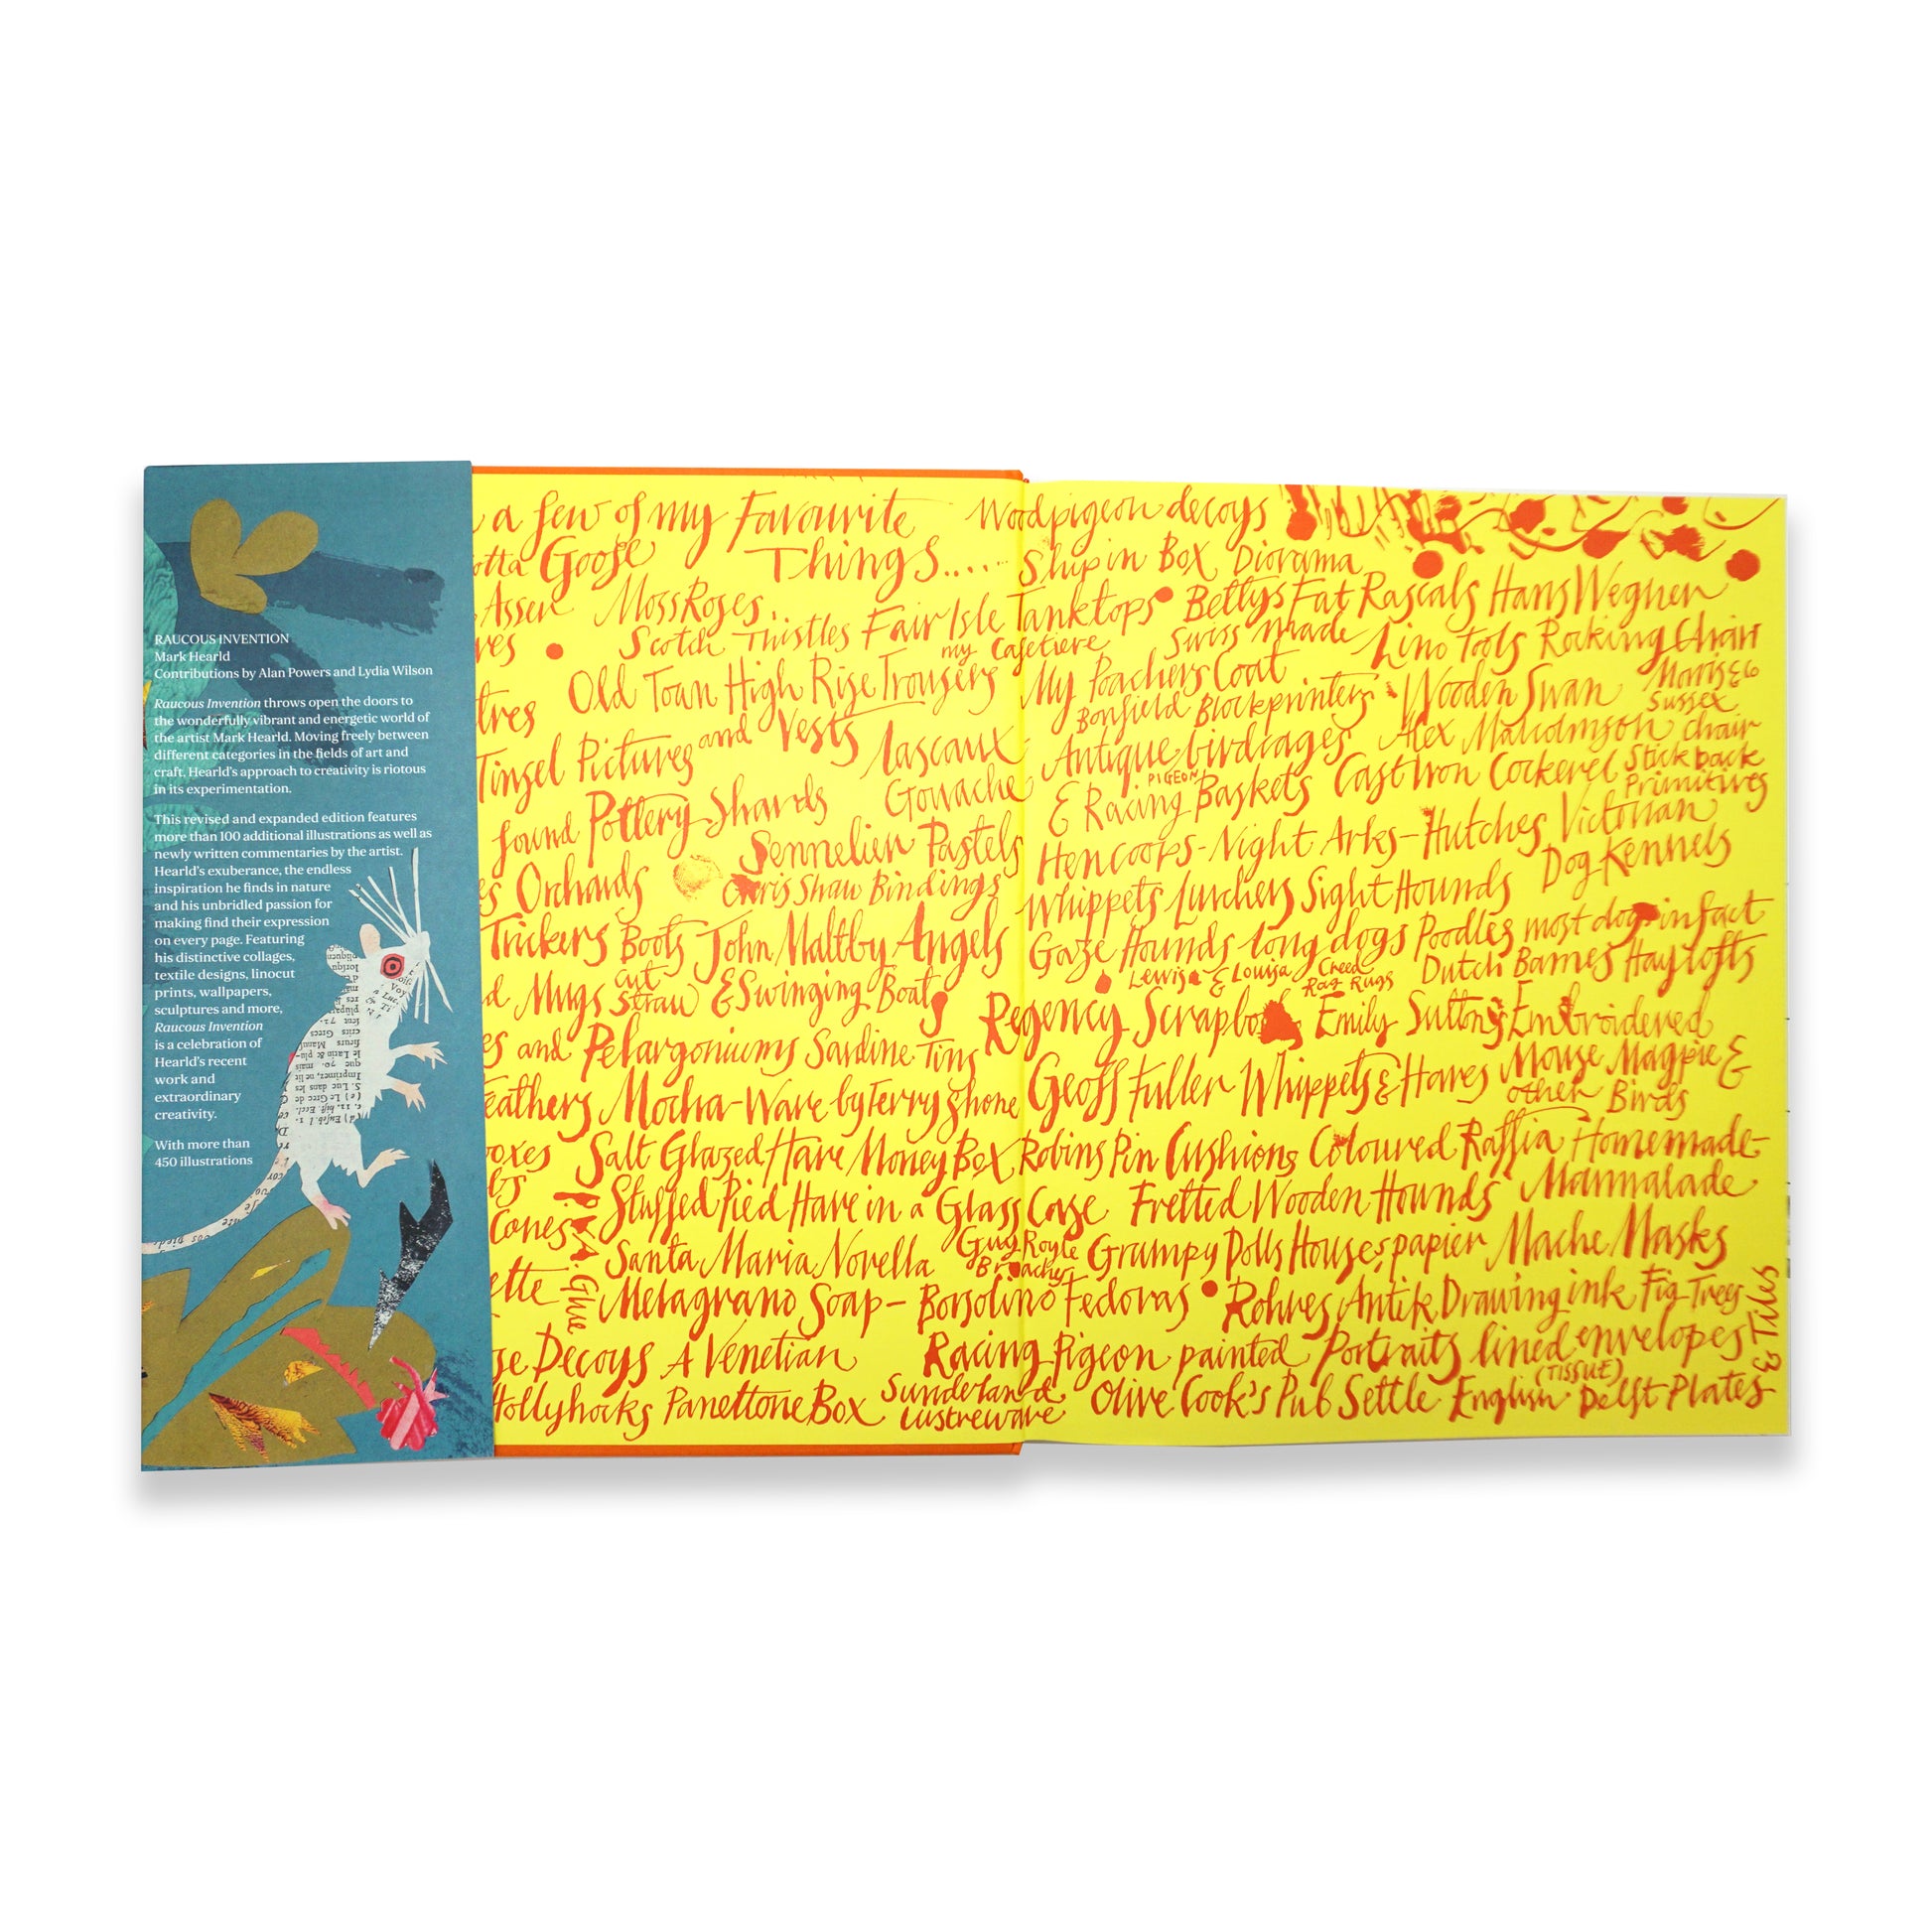 RAUCOUS INVENTION
Mark Hearld
Contributions by Alan Powers and Lydia Wilson
Raucous Invention throws open the doors to
the wonderfully vibrant and energetic world of
the artist Mark Hearld. Moving freely between
different categories in the fields of art and
craft, Hearld's approach to creativity is riotous
in its experimentation.
This revised and expanded edition features
more than 100 additional illustrations as well as
newly written commentaries by the artist.
Hearld's exuberance, the endless
inspiration he finds in nature
and his unbridled passion for
making find their expression
on every page. Featuring
his distinctive collages,
textile designs, linocut
prints, wallpapers,
sculptures and more,
Raucous Invention
is a celebration of
Hearld's recent
work and
extraordinary
creativity.
With more than
450 illustrations
a few of my Favourite
Things.....
Goose
Moss Roses
Scotch Thistles Fair Isle Tanktops
my Cafetiere
Old Town High Rise Trousers
and Vests
Tinsel Pictures
Lascaux
Gouache
found Pottery Shards
Sennelier Pastels
Orchards
Chris Shaw Bindings
Trickers Boots John Maltby Angels
Mugs cut
Straw & Swinging Boats
and Pelargoniums Sardine Tins
eathers Mocha-Ware by Terry Shone
oxes Salt Glazed Hare Money Box
Stuffed Pied Hare in a Glass Case
Cones
P.V.A. Glue
Santa Maria Novella
Guy Royle
Broaches
ette Melagrano Soap - Borsolino Fedoras
se Decoys A Venetian
Hollyhocks Panettone Box
Sunderland
Lustreware
Woodpigeon decoys
Ship in Box Diorama
Bettys Fat Rascals Hans Wegner
Swiss made Lino Tools Rocking Chair
My Poachers Coat
Bonfield Blockprinters Wooden Swan
Morris & Co
Sussex
chair
Antique birdcages Alex Malcolmson
PIGEON
& Racing Baskets Cast Iron Cockerel
Stick back
Primitives
Hencoops - Night Arks - Hutches Victorian
Dog Kennels
Whippets Lurchers Sight Hounds
Gaze Hounds long dogs Poodles most dogs in fact
Lewis & Louisa Creed
Rag Rugs
Dutch Barnes Haylofts
Regency Scrapbook Emily Suttons Embroidered
Mouse Magpie &
other Birds
Geoff Fuller Whippets & Hares
Robins Pin Cushions Coloured Raffia Homemade-
Marmalade
Fretted Wooden Hounds
Grumpy Dolls Houses papier Mache Masks
Rohres Antik Drawing ink Fig Trees
Racing Pigeon painted Portraits lined envelopes
(TISSUE)
Olive Cook's Pub Settle English Delft Plates
& Tiles